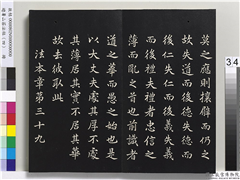 莫之應則攘臂而仍之
故失道而後德失德而
後仁失仁而後義失義
而後禮夫禮者忠信之
薄而亂之首也前識者
道之華而愚之始也是
以大丈夫處其厚不處
其薄居其實不居其華
故去彼取此
法本章第三十九
34